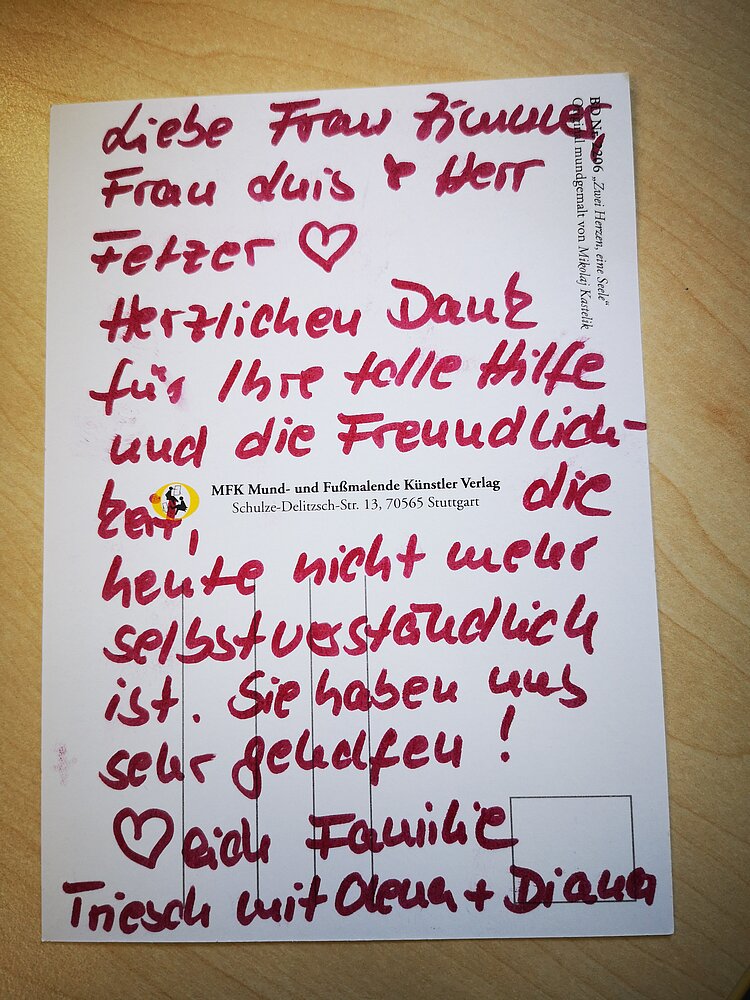 Liebe Frau Zimmer,
Frau Luis & Herr
Fetzer ♡
Herzlichen Dank
für Ihre tolle Hilfe
und die Freundlich-
keit, die
heute nicht mehr
selbstverständlich
ist. Sie haben uns
sehr geholfen!
♡ lich Familie
Triesch mit Olena + Diana
MFK Mund- und Fußmalende Künstler Verlag
Schulze-Delitzsch-Str. 13, 70565 Stuttgart
„Zwei Herzen, eine Seele“
mundgemalt von Mikolaj Kastelik